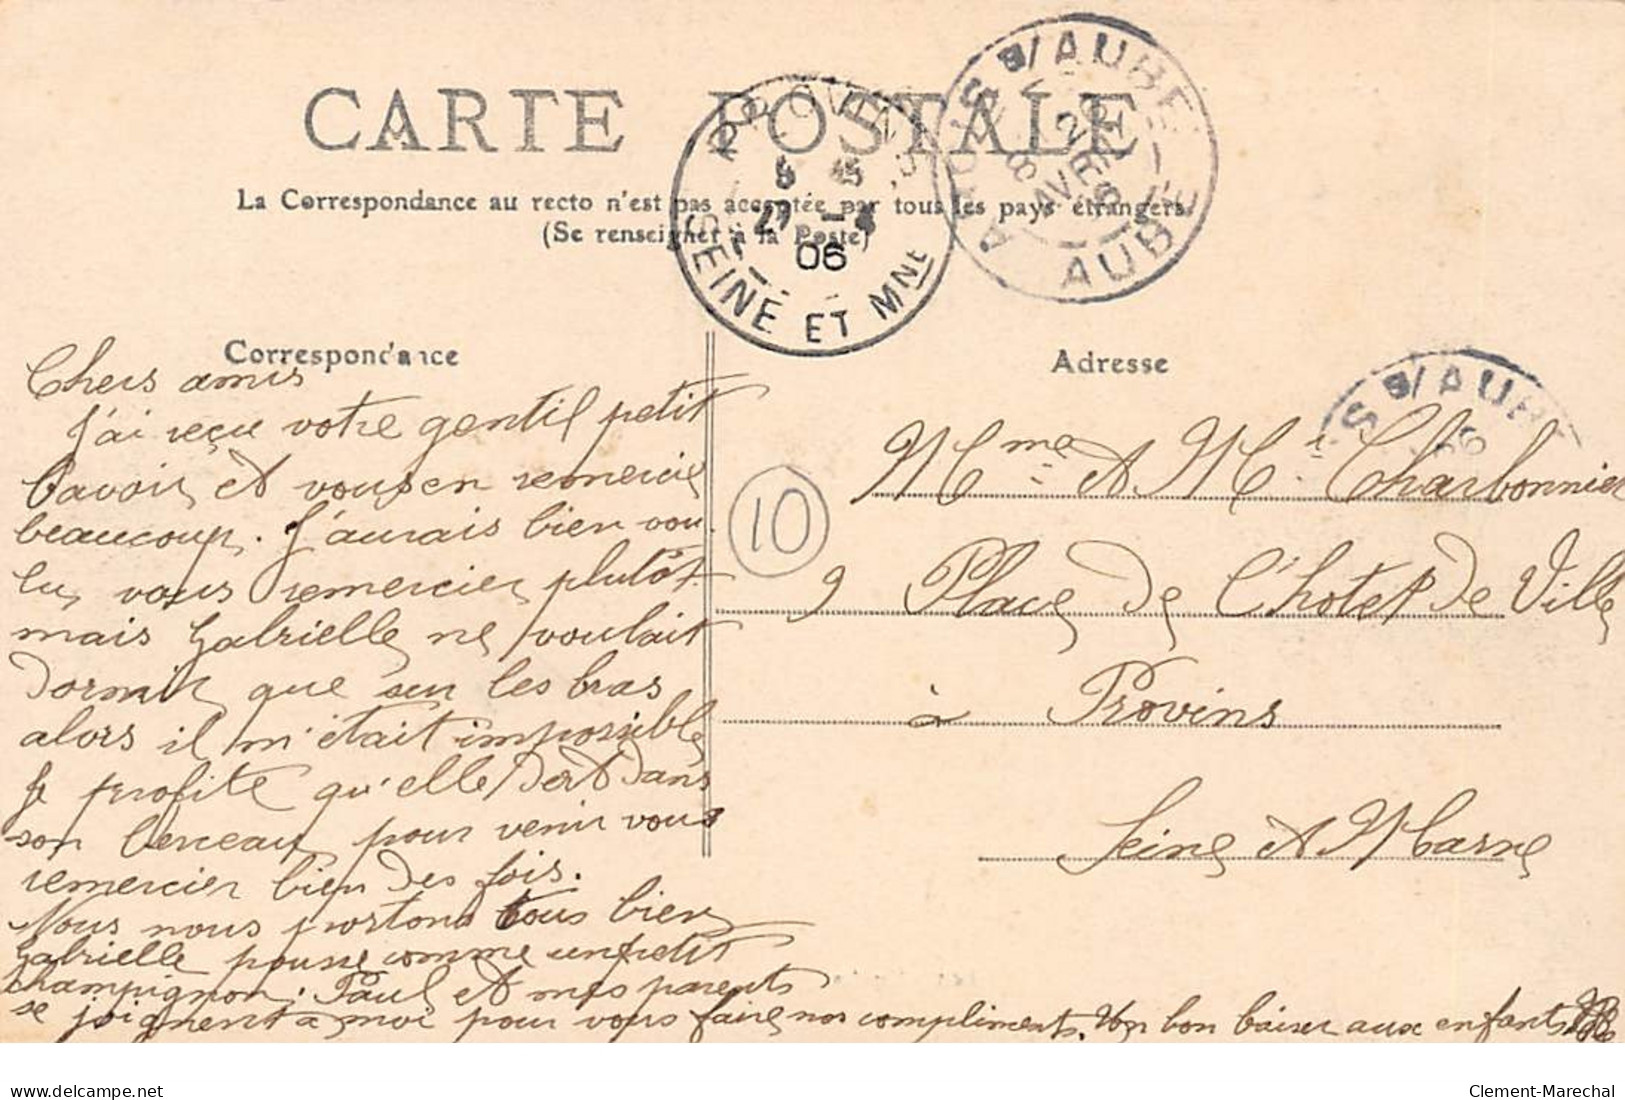 CARTE POSTALE
La Correspondance au recto n'est pas acceptée par tous les pays étrangers
(Se renseigner à la Poste)
PROVINS
27 - 4
06
SEINE ET MNE
ARCIS S/AUBE
AVRIL
06
AUBE
Correspondance
Chers amis
J'ai reçu votre gentil petit
bavoir et vous en remercie
beaucoup. J'aurais bien vou
lu vous remercier plutôt
mais Gabrielle ne voulait
dormir que sur les bras
alors il m'était impossible
Je profite qu'elle dort dans
son berceau pour venir vous
remercier bien des fois.
Nous nous portons tous bien
Gabrielle pousse comme un petit
champignon. Paul et mes parents
se joignent à moi pour vous faire nos compliments. Un bon baiser aux enfants
Adresse
S S/AUBE
06
Mme et Mr Charbonnier
9 Place de l'hotel de Ville
à Provins
Seine et Marne
10
www.delcampe.net
Clement-Marechal